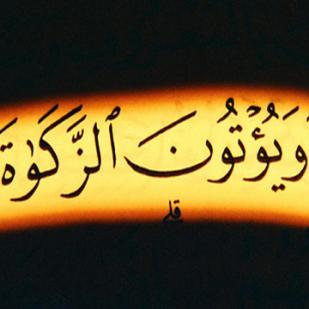 وَيُؤْتُونَ ٱلزَّكَوٰةَ
قلى